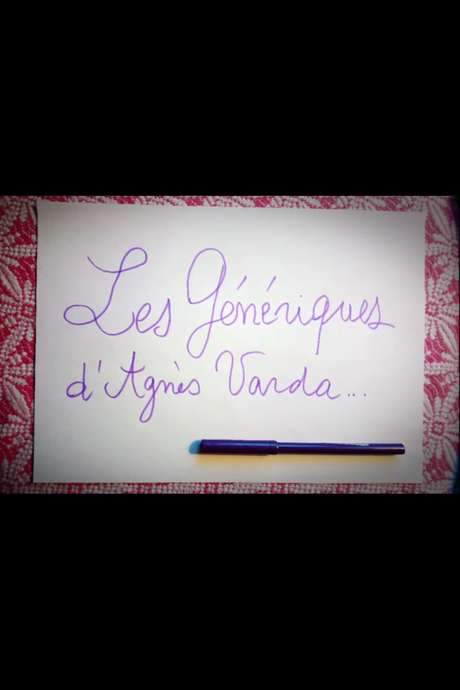 Les Génériques
d'Agnès Varda...